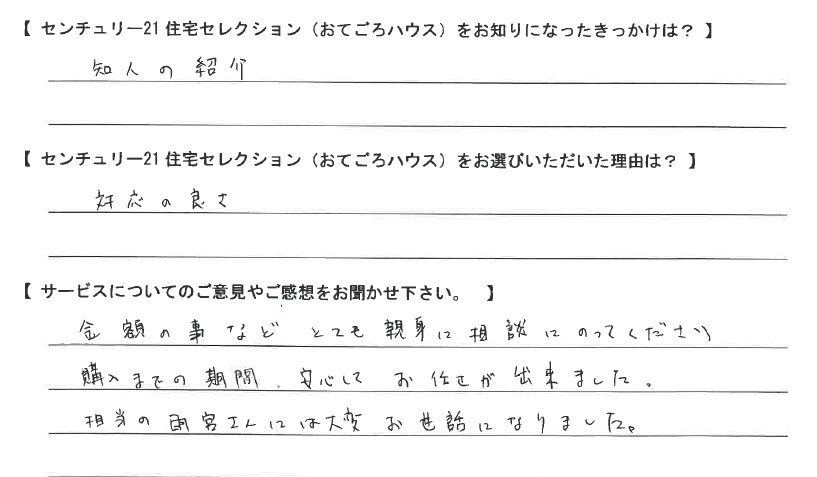 【 センチュリー21 住宅セレクション（おてごろハウス）をお知りになったきっかけは？ 】
知人の紹介
【 センチュリー21 住宅セレクション（おてごろハウス）をお選びいただいた理由は？ 】
対応の良さ
【 サービスについてのご意見やご感想をお聞かせ下さい。 】
金額の事など とても親身に相談にのってくださり
購入までの期間、安心して お任せが出来ました。
担当の雨宮さんには大変お世話になりました。